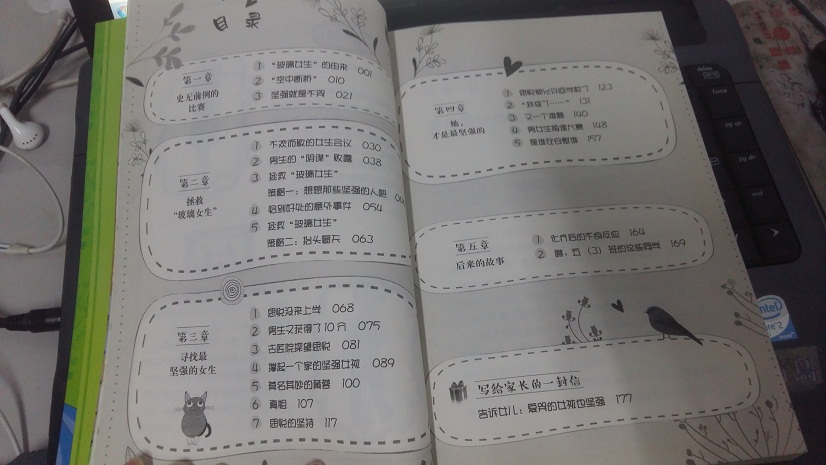 目录
第一章
史无前例的
比赛
1 “玻璃女生”的由来 001
2 “空中断桥” 010
3 坚强就是不哭 021
第二章
拯救
“玻璃女生”
1 不欢而散的女生会议 030
2 男生的“阴谋”败露 038
3 拯救“玻璃女生”
策略一：想想那些坚强的人吧
4 恰到好处的意外事件 054
5 拯救“玻璃女生”
策略二：抬头看天 063
第三章
寻找最
坚强的女生
1 思悦没来上学 068
2 男生又获得了10分 075
3 去医院探望思悦 081
4 撑起一个家的坚强女孩 089
5 莫名其妙的黄卷 100
6 真相 107
7 思悦的坚持 117
第四章
她，
才是最坚强的
1 123
2 131
3 又一个难题 140
4 男女生角逐大赛 148
5 是谁在自愿谁 157
第五章
后来的故事
1 化疗后的不良反应 164
2 嗨，五（3）班的这些同学 169
写给家长的一封信
告诉女儿：爱哭的女孩也坚强 177
delete
home
pg up
pg dn
end
intel